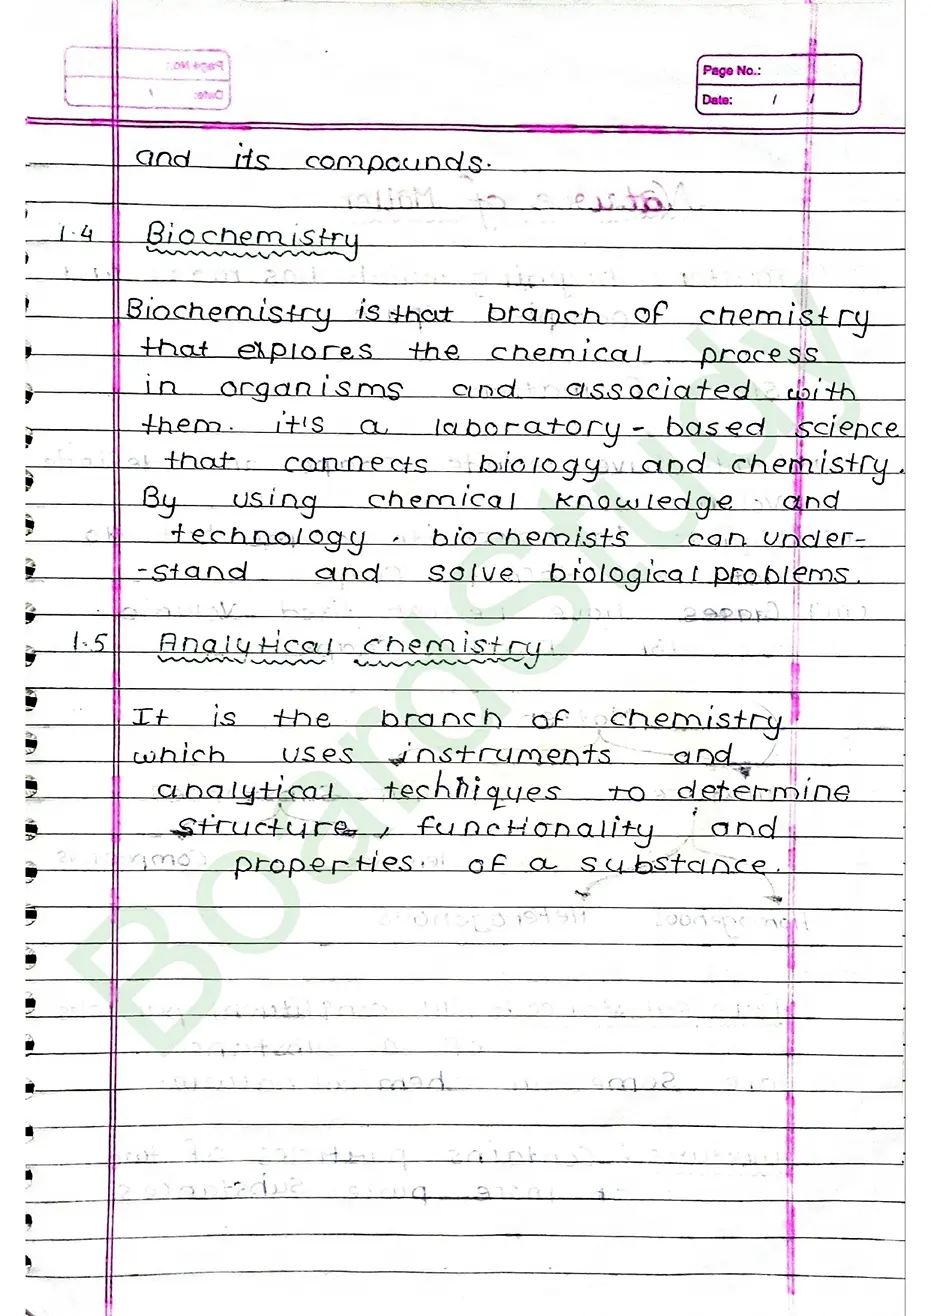 Page No.:
Date: / /
and its compounds.
1.4 Biochemistry
Biochemistry is that branch of chemistry
that explores the chemical process
in organisms and associated with
them. it's a laboratory - based science
that connects biology and chemistry.
By using chemical knowledge and
technology . biochemists can under-
-stand and solve biological problems.
1.5 Analytical chemistry
It is the branch of chemistry
which uses instruments and
analytical techniques to determine
structure, functionality and
properties. of a substance.
BoardStudy